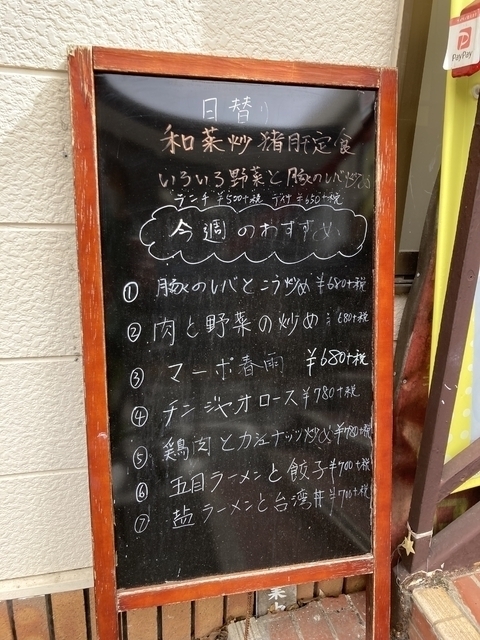 日替り
和菜炒猪肝定食
いろいろ野菜と豚のレバ炒め
ランチ ¥500+税 ¥550+税
今週のおすすめ
① 豚のレバとニラ炒め ¥680+税
② 肉と野菜の炒め 680+税
③ マーボ春雨 ¥680+税
④ チンジャオロース ¥780+税
⑤ 鶏肉とカシューナッツ炒め ¥780+税
⑥ 五目ラーメンと餃子 ¥700+税
⑦ 塩ラーメンと台湾丼 ¥700+税
PayPay